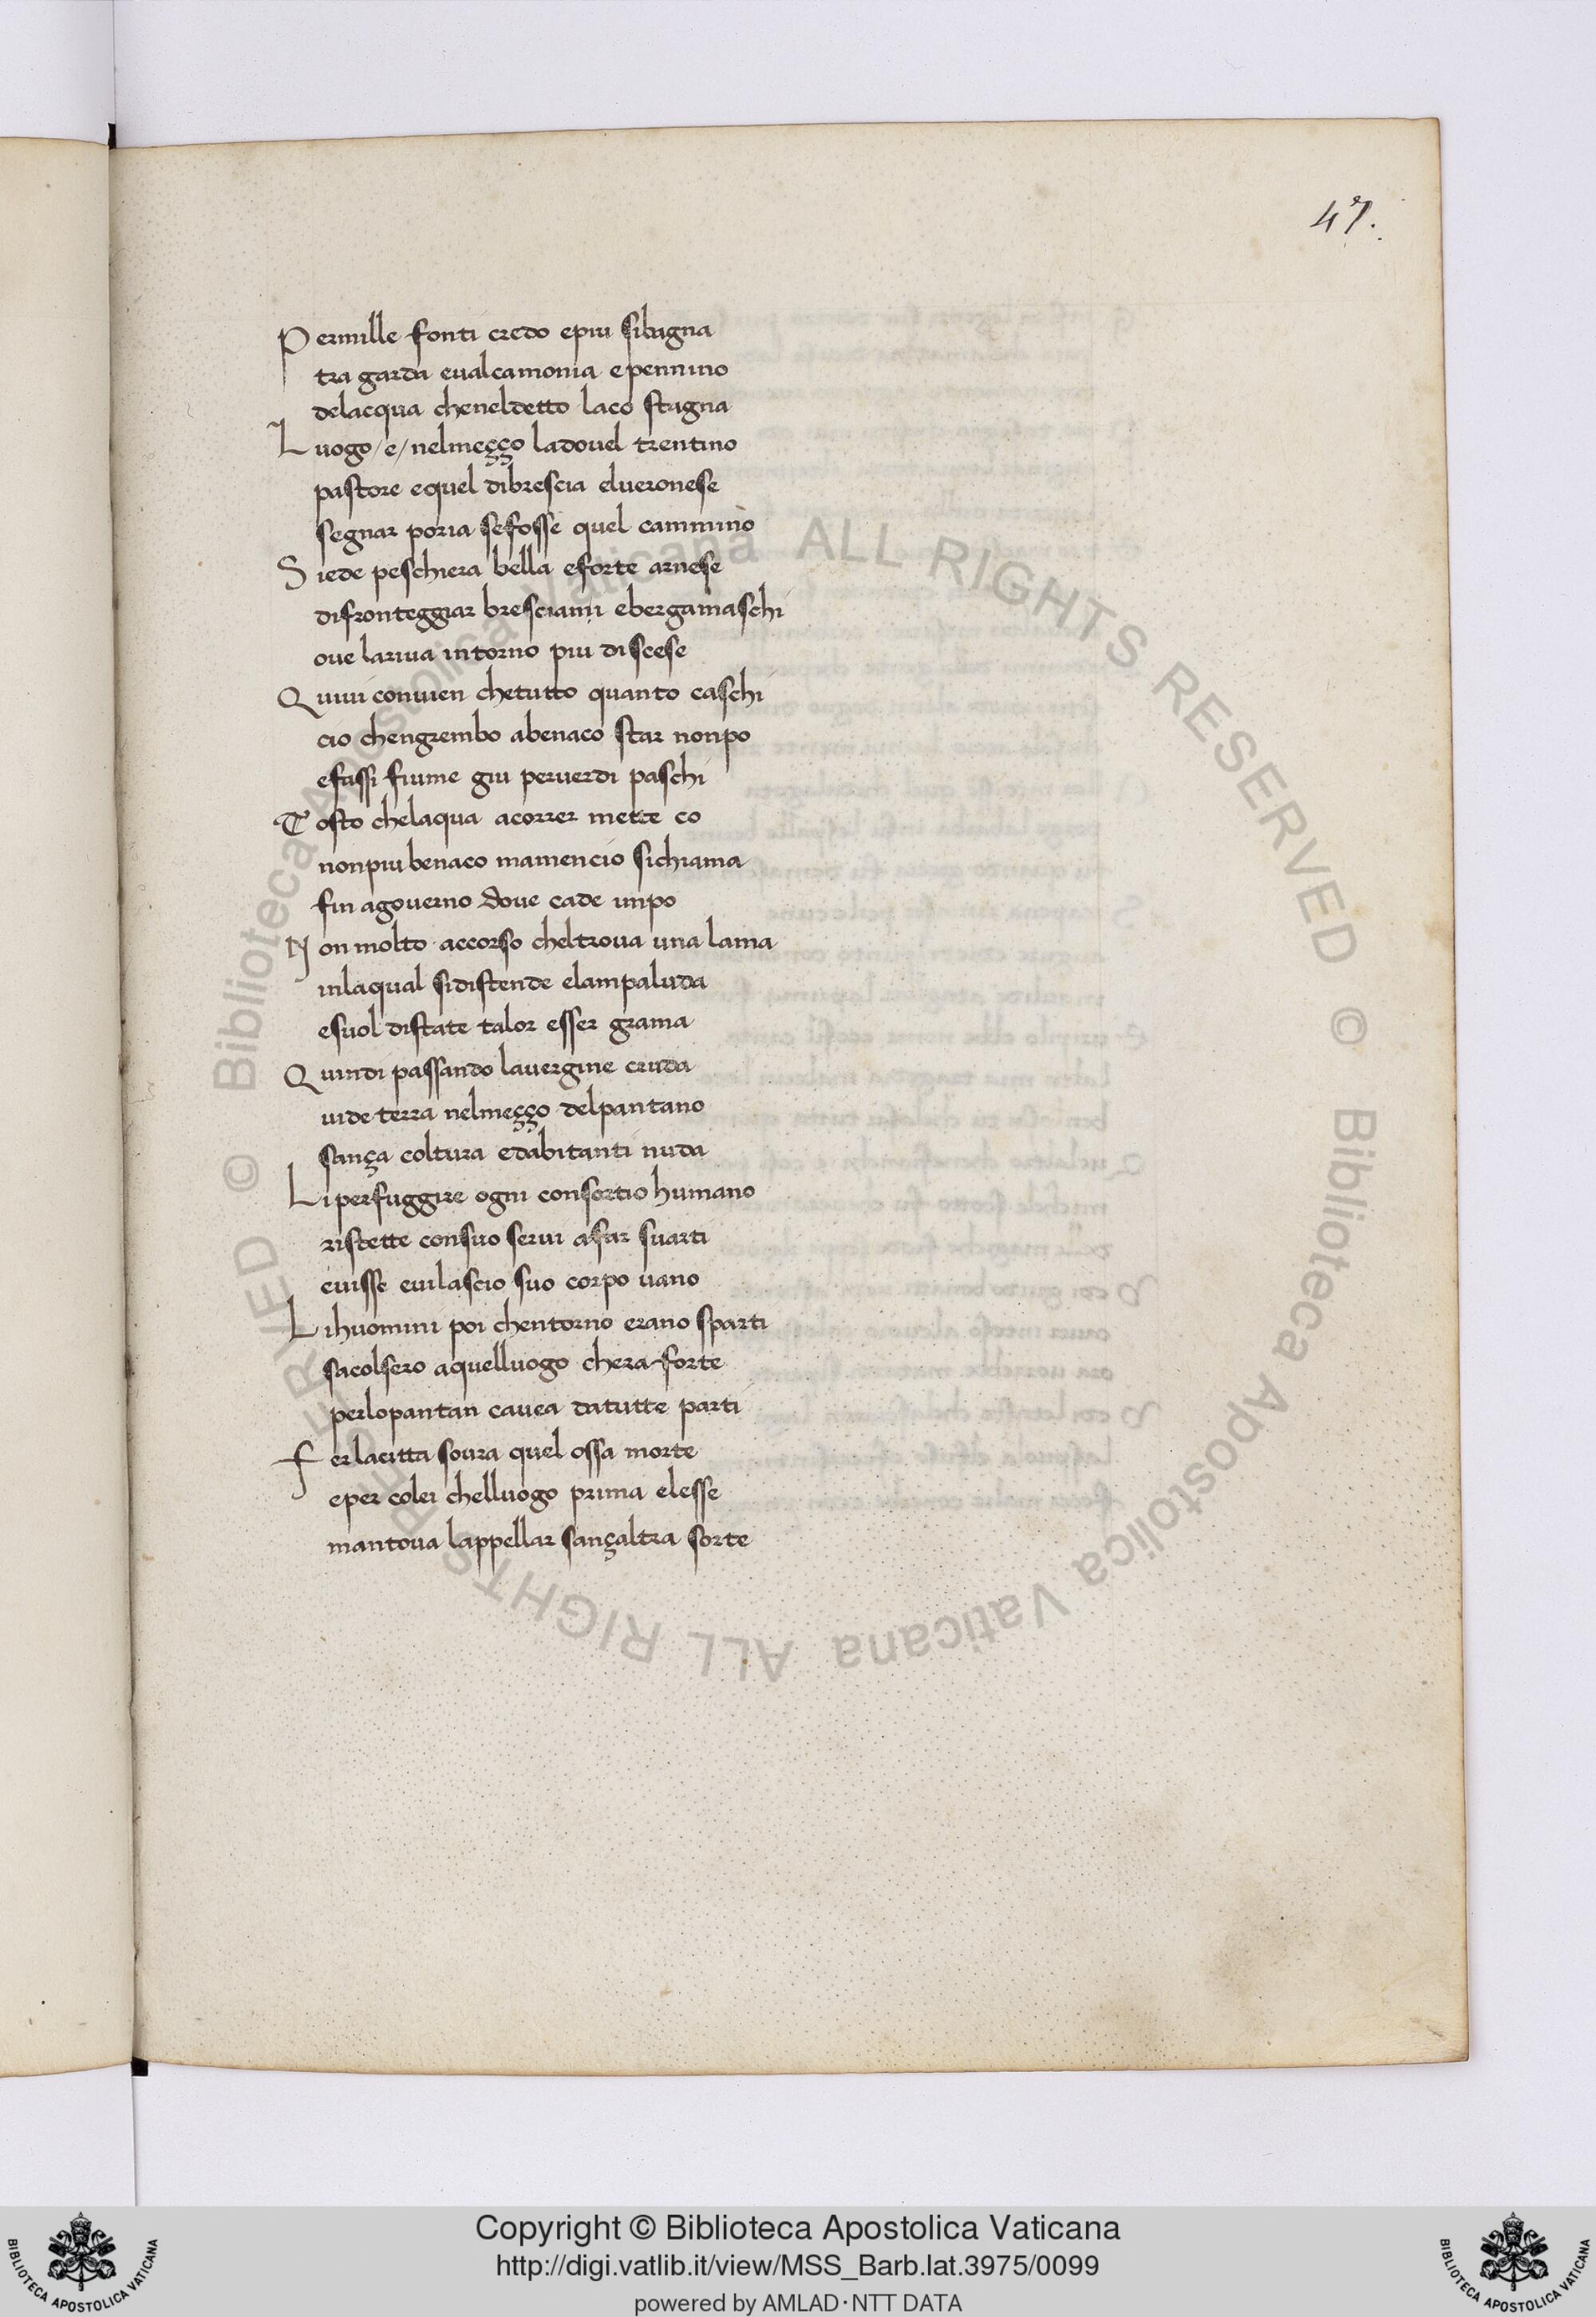 47.
Permille fonti credo epiu sibagna
tra garda eualcamonia epennino
delacqua cheneldetto laco stagna
Luogo/e/nelmeççço ladouel trentino
pastore equel dibrescia elueronese
segnar poria sefosse quel cammino
Siede peschiera bella eforte arnese
difronteggiar bresciani ebergamaschi
oue lariua intorno piu discese
Quiui conuien chetutto quanto caschi
cio chengrembo abenaco star nonpo
efassi fiume giu peruerdi paschi
Tosto chelaqua acorrer mette co
nonpiu benaco mamencio sichiama
fin agouerno doue cade inpo
Non molto accorso cheltroua una lama
inlaqual sidistende elampaluda
esuol distate talor esser grama
Quindi passando lauergine cruda
uide terra nelmeçço delpantano
sança coltura edabitanti nuda
Li perfuggire ogni consortio humano
ristette consuo serui afar suarti
euisse euilascio suo corpo uano
Lihuomini poi chentorno erano sparti
sacolsero aquelluogo chera forte
perlopantan cauea datutte parti
Ferlacitta soura quel ossa morte
eper colei chelluogo prima elesse
mantoua lappellar sançaltra sorte
© Biblioteca Apostolica Vaticana ALL RIGHTS RESERVED © Biblioteca Apostolica Vaticana ALL RIGHTS RESERVED
Copyright © Biblioteca Apostolica Vaticana
http://digi.vatlib.it/view/MSS_Barb.lat.3975/0099
powered by AMLAD·NTT DATA
BIBLIOTECA APOSTOLICA VATICANA
BIBLIOTECA APOSTOLICA VATICANA